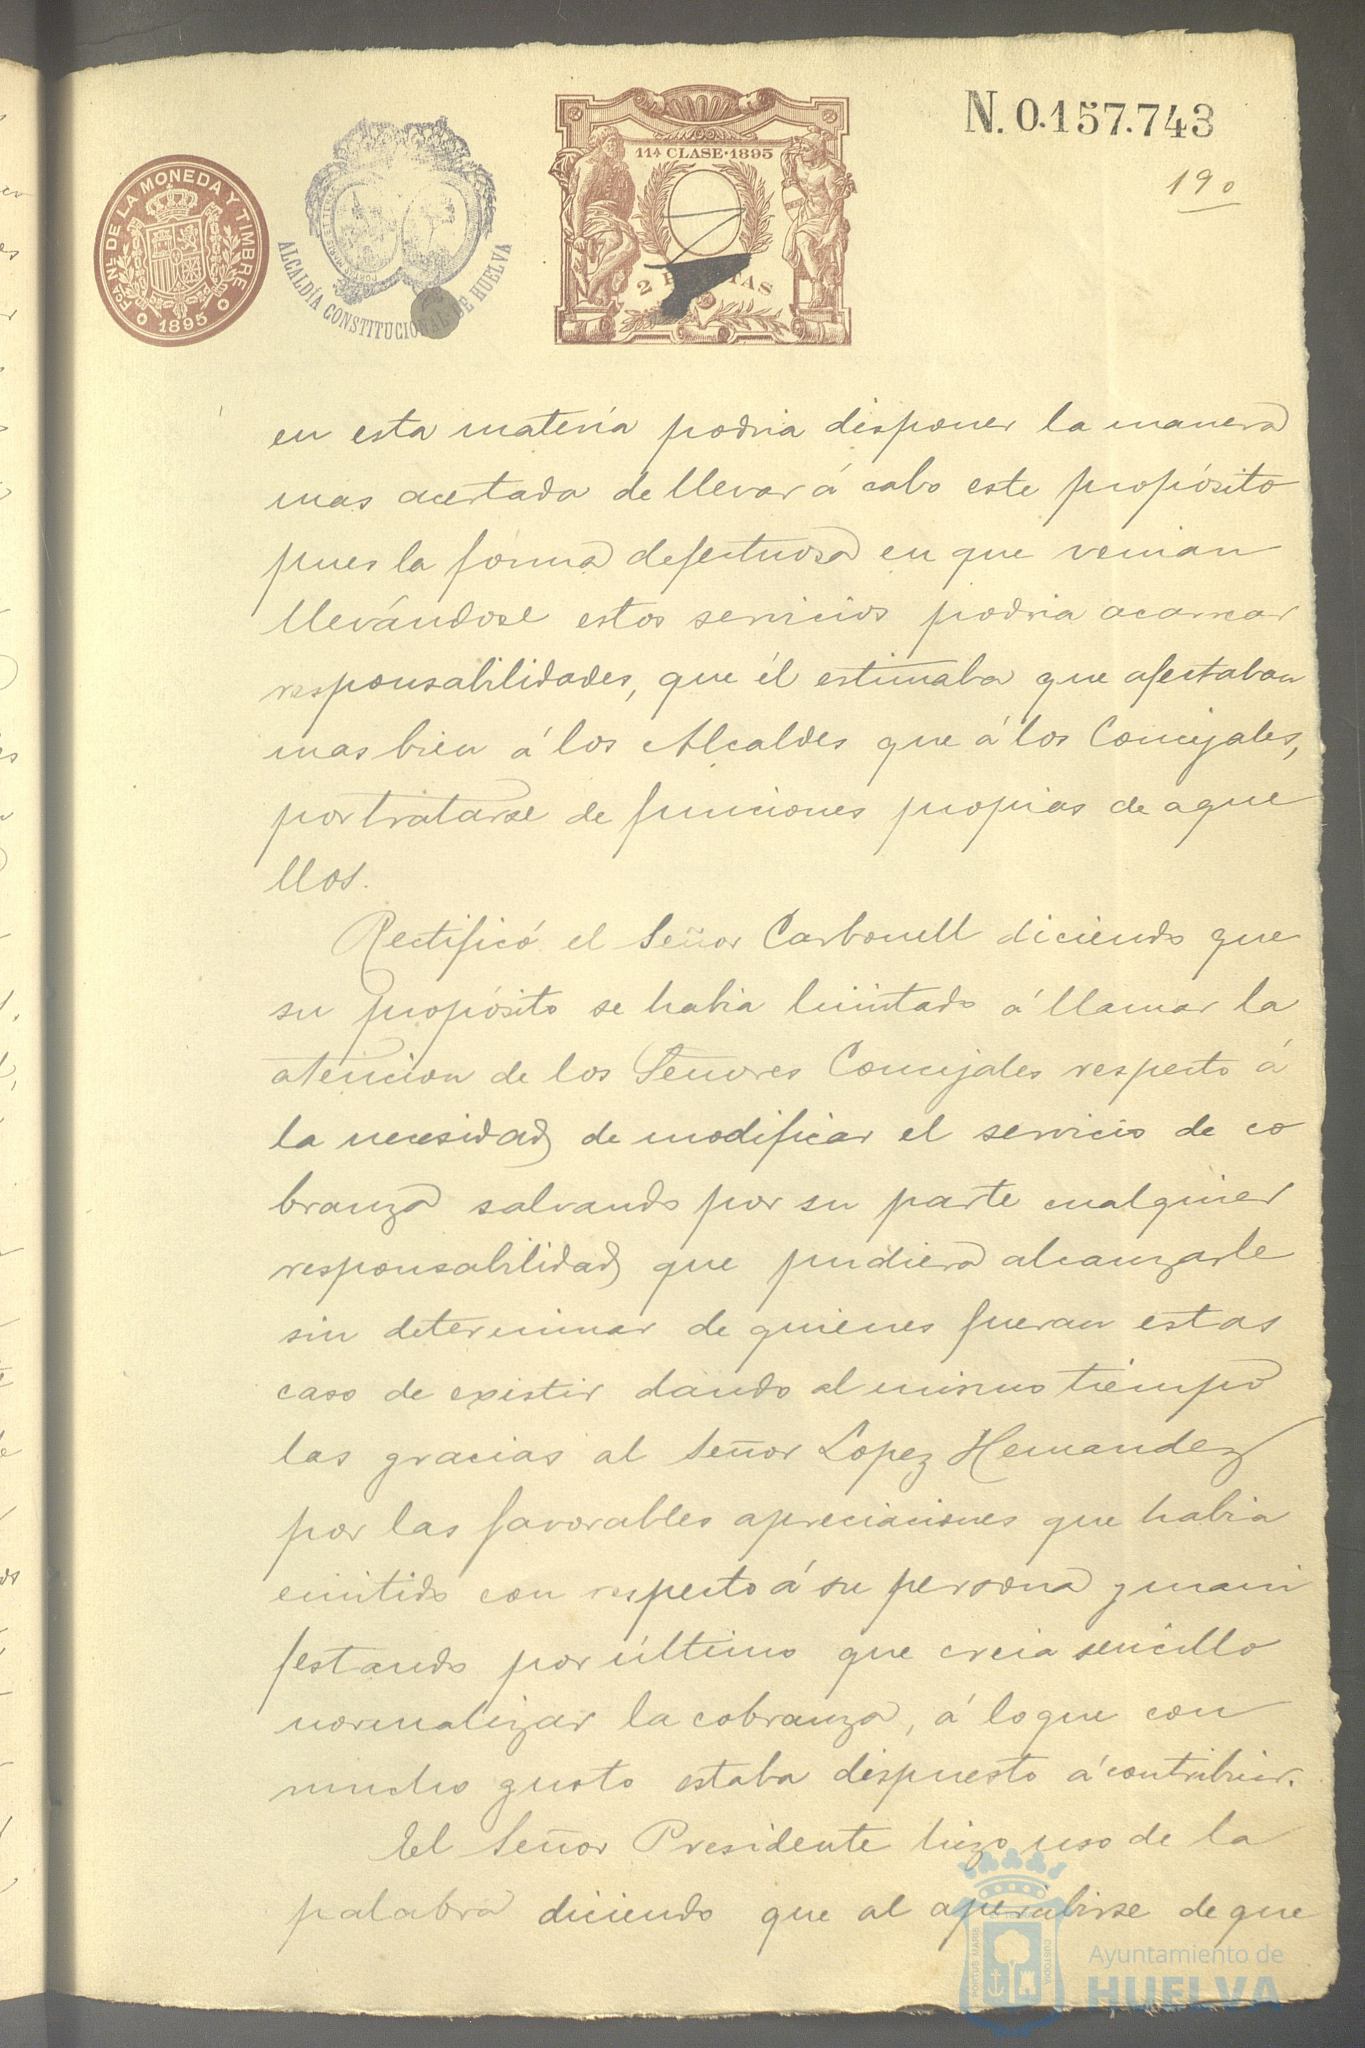 N. 0.157.743
190
FCA NL DE LA MONEDA Y TIMBRE
1895
ALCALDÍA CONSTITUCIONAL DE HUELVA
11ª CLASE·1895
2 PESETAS
en esta materia podria disponer la manera
mas acertada de llevar á cabo este propósito
pues la forma defectuosa en que venian
llevándose estos servicios podria acarrear
responsabilidades, que él estimaba que afectaban
mas bien á los Alcaldes que á los Concejales,
por tratarse de funciones propias de aque
llos.
Rectificó el Señor Carbonell diciendo que
su propósito se habia limitado á llamar la
atencion de los Señores Concejales respecto á
la necesidad de modificar el servicio de co
branza salvando por su parte cualquier
responsabilidad que pudiera alcanzarle
sin determinar de quienes fueran estas
caso de existir dando al mismo tiempo
las gracias al Señor Lopez Hernandez
por las favorables apreciaciones que habia
emitido con respecto á su persona y mani
festando por último que creia sencillo
normalizar la cobranza, á lo que con
mucho gusto estaba dispuesto á contribuir.
El Señor Presidente hizo uso de la
palabra diciendo que al apercibirse de que
PORTUS MARIS
CUSTODIA
Ayuntamiento de
HUELVA